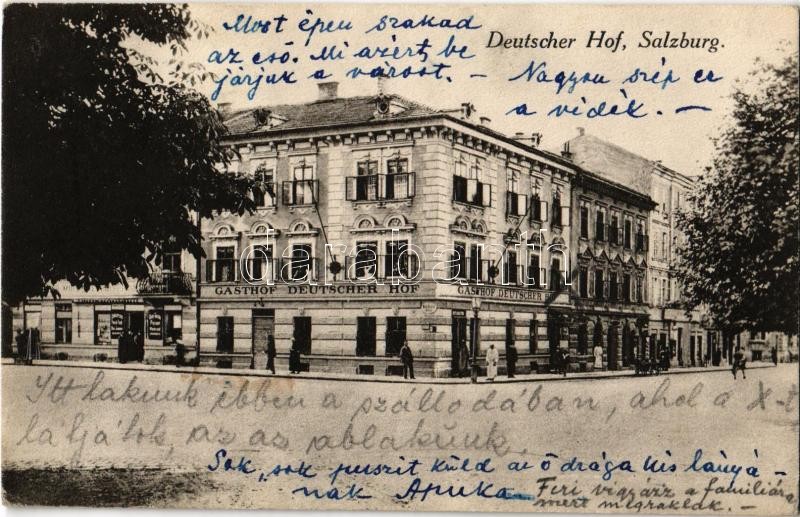 Most éppen szakad
az eső. Mi azért be
járjuk a várost. – Nagyon szép ez
a vidék. –
Deutscher Hof, Salzburg.
darabanth
GASTHOF DEUTSCHER HOF
GASTHOF DEUTSCHER
Itt lakunk ebben a szállodában, ahol a X-t
látjátok, az az ablakunk.
Sok, sok puszit küld az ő drága kis lányá-
nak Apuka –
Feri vigyázz a familiára
mert megraklak. –